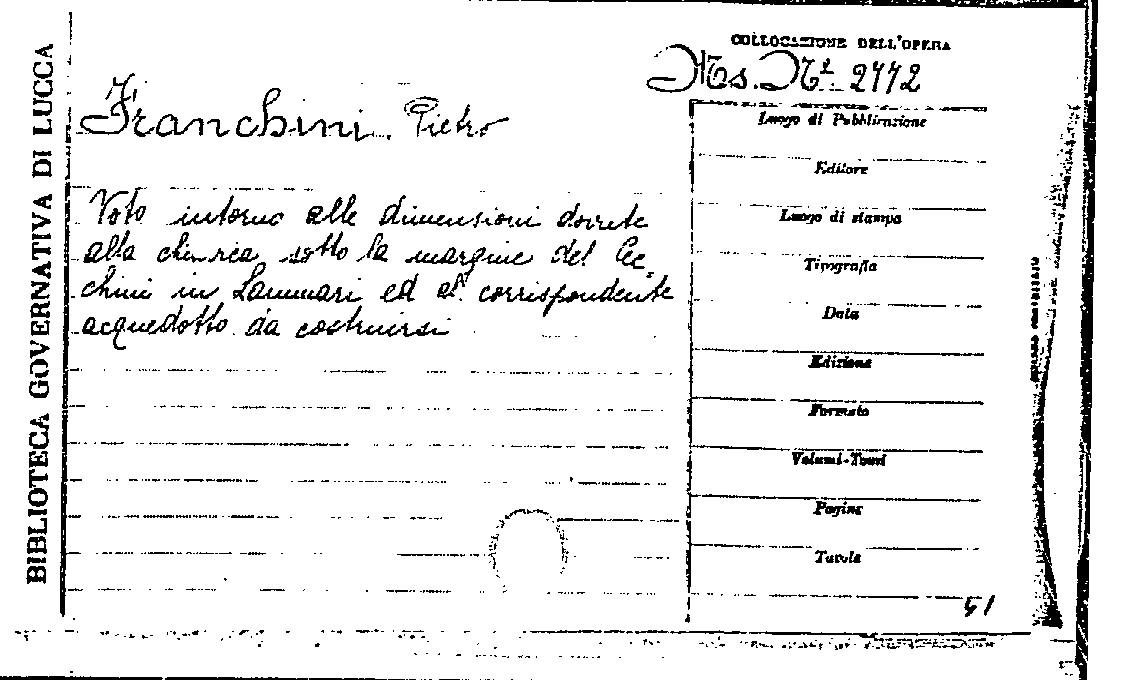 BIBLIOTECA GOVERNATIVA DI LUCCA
COLLOCAZIONE DELL'OPERA
Ms. N.º 2772
Franchini Pietro
Voto intorno alle dimensioni dovute
alla chiavica sotto la margine del Cec-
chini in Lammari ed al corrispondente
acquedotto da costruirsi
Luogo di Pubblicazione
Editore
Luogo di stampa
Tipografia
Data
Edizione
Formato
Volumi-Tomi
Pagine
Tavole